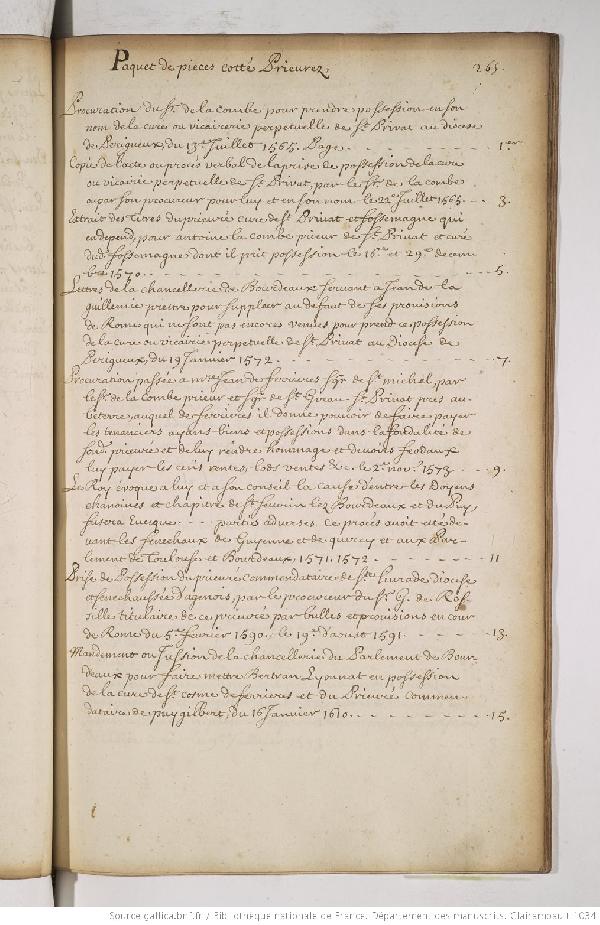 Paquet de pieces cotté Prieurez
265.
Procuration du Sr. de la Combe pour prendre possession en son
nom de la cure ou vicairerie perpetuelle de St. Privat au diocese
de Perigueux, du 13e. Juillet 1565. Page - - - 1er
Copie de l'acte ou procés verbal de la prise de possession de la cure
ou vicairie perpetuelle de St. Privat, par le Sr. de la Combe
ou par son procureur pour luy et en son nom le 22e Juillet 1565 - - 3.
Extrait des titres du prieuré cure de St. Privat et fossemagne qui
en depend, pour antoine la Combe prieur de St. Privat et curé
dud. fossemagne dont il prit possession le 16e. et 29e. decem
bre 1570 - - - 5.
Lettres de la chancellerie de Bourdeaux servant a Jean de la
guillemie prettre pour supplaer au defaut de ses provisions
de Rome qui ne sont pas encores venues pour prendre possession
de la cure ou vicairie perpetuelle de St. Privat au Diocese de
Perigueux, du 19 Janvier 1572 - - - 7.
Procuration passée a mre Jean de ferrieres Sgr. de St. michel, par
led. Sr. de la Combe prieur et Sgr. de St. Privat pres au
beterre, auquel de ferrieres il donne pouvoir de faire payer
les tenanciers ayans biens et possessions dans la fondalité de
sond. prieuré et de luy rendre hommage et devoirs feodaux
luy payer les cens rentes, lods ventes &c. le 2e. nov. 1573 - - 9.
Le Roy évoque a luy et a son conseil la cause d'entre les Doyens
chanoines et chapitre de St. Seurin lez Bourdeaux et du Puy,
Evesque - - - parties adverses. Ce procés avoit eté de-
vant les senechaux de Guyenne et de quercy et aux Par-
lement de Toulouse et Bourdeaux, 1571. 1572 - - - 11
Prise de Possession du prieuré commendataire de Ste. Livrade diocese
et senechaussée d'agenois, par le procureur du Sr. G. de Ros-
silles titulaire de ce prieuré par bulles et provisions en cour
de Rome du 5e. fevrier 1590, le 19e. d'aoust 1591 - - - 13.
Mandement ou Jussion de la chancellerie du Parlement de Bour
deaux pour faire mettre Bertran Lyonnat en possession
de la cure de St. Cosme de ferrieres et du Prieuré commen-
dataire de puygilbert, du 16 Janvier 1610 - - - 15.
Source gallica.bnf.fr / Bibliothèque nationale de France. Département des manuscrits. Clairambault 1034